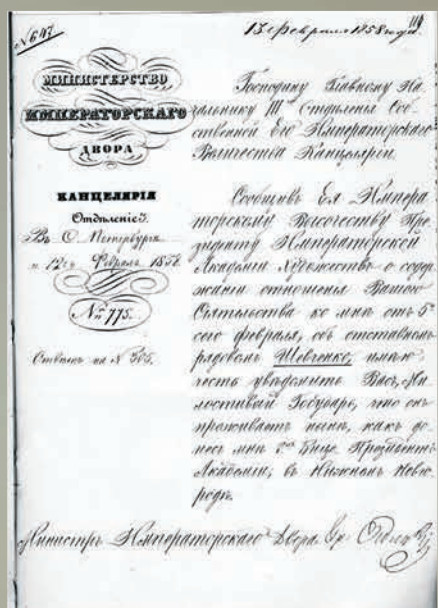 № 647
13 февраля 1858 года.
МИНИСТЕРСТВО
ИМПЕРАТОРСКАГО
ДВОРА
КАНЦЕЛЯРІЯ
Отдѣленіе
Въ С. Петербургѣ
12го Февраля 1858.
№ 775.
Отвѣтъ на № 305.
Господину Главному На-
чальнику III Отдѣленія Соб-
ственной Его Императорскаго
Величества Канцеляріи.
Сообщивъ Ея Импера-
торскому Высочеству Пре-
зиденту Императорской
Академіи Художествъ о содер-
жаніи отношенія Вашего
Сіятельства ко мнѣ отъ 5го
сего февраля, объ отставномъ
рядовомъ Шевченко, имѣю
честь увѣдомить Васъ, Ми-
лостивый Государь, что онъ
проживаетъ нынѣ, какъ до-
несъ мнѣ Вице Президентъ
Академіи, въ Нижнемъ Новѣ-
родѣ.
Министръ Императорскаго Двора Гр.